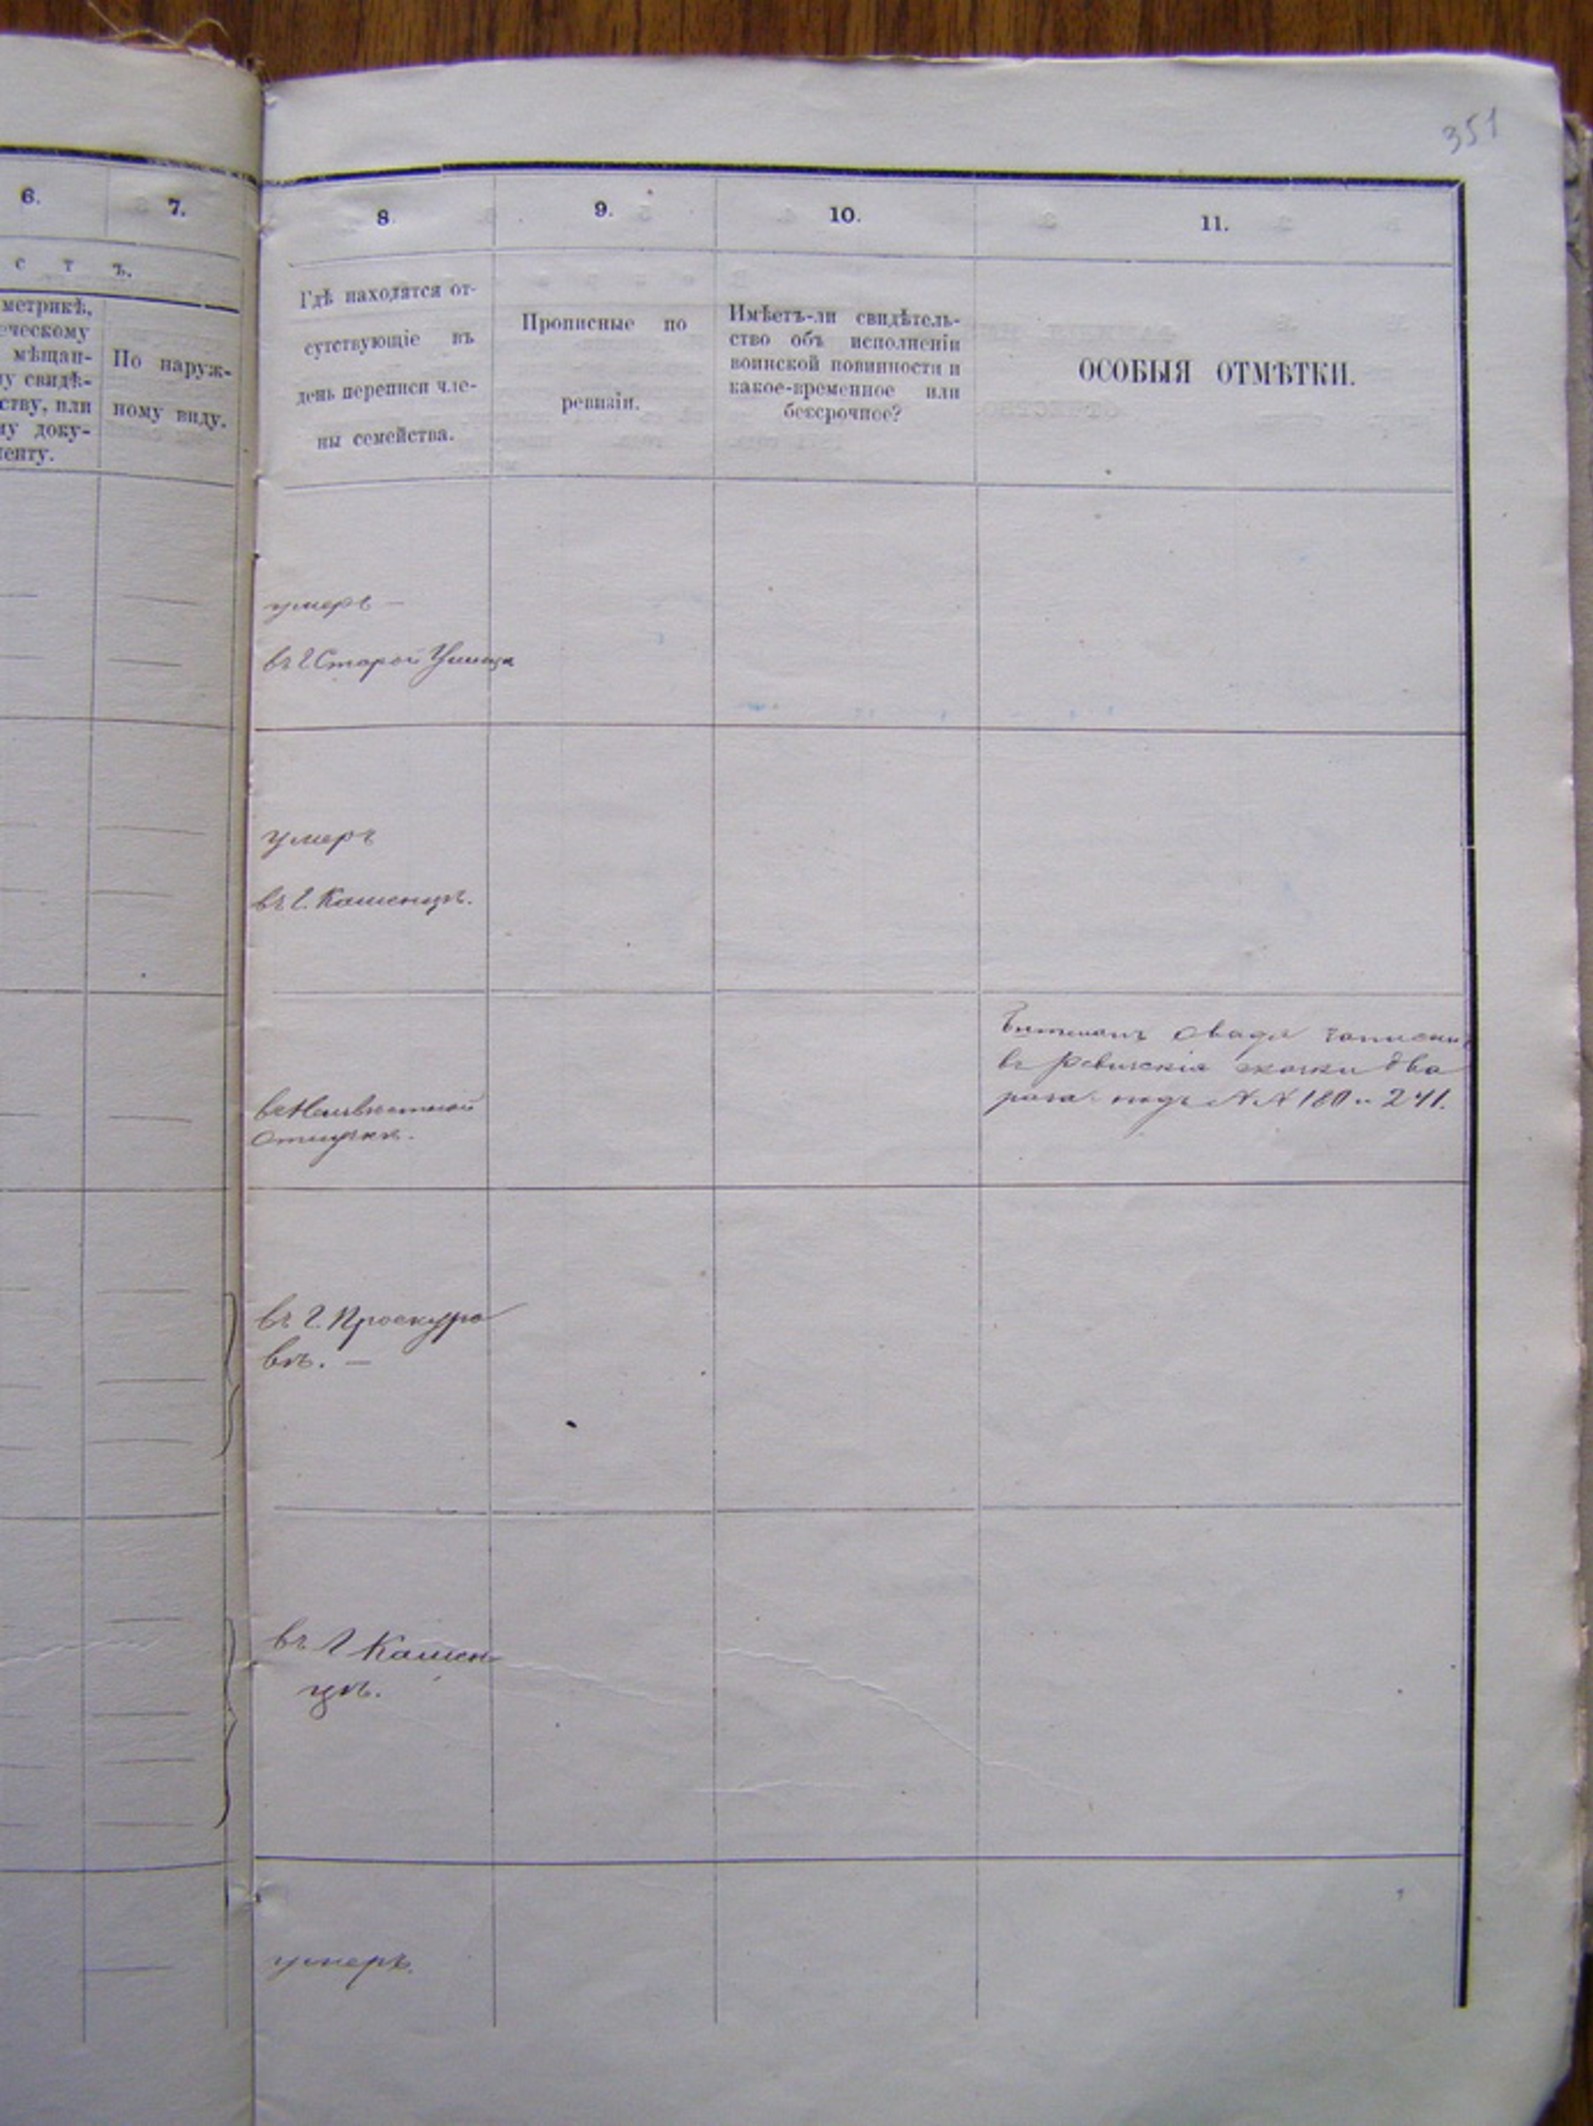 351
6.
7.
8
9.
10.
11.
с т ъ.
метрикѣ,
ческому
мѣщан-
у свидѣ-
ству, или
му доку-
менту.
По наруж-
ному виду.
Гдѣ находятся от-
сутствующіе въ
день переписи чле-
ны семейства.
Прописные по
ревизіи.
Имѣетъ-ли свидѣтель-
ство объ исполненіи
воинской повинности и
какое-временное или
безсрочное?
ОСОБЫЯ ОТМѢТКИ.
умеръ —
въ г Старой Ушица
умеръ
въ г. Каменцѣ.
въ Неизвѣстной
Отлучкѣ.
Овадя записанъ
въ Ревизскія сказки два
раза подъ №№ 180 и 241.
въ г. Проскуро
вѣ. —
въ г Камен
цѣ.
умеръ.